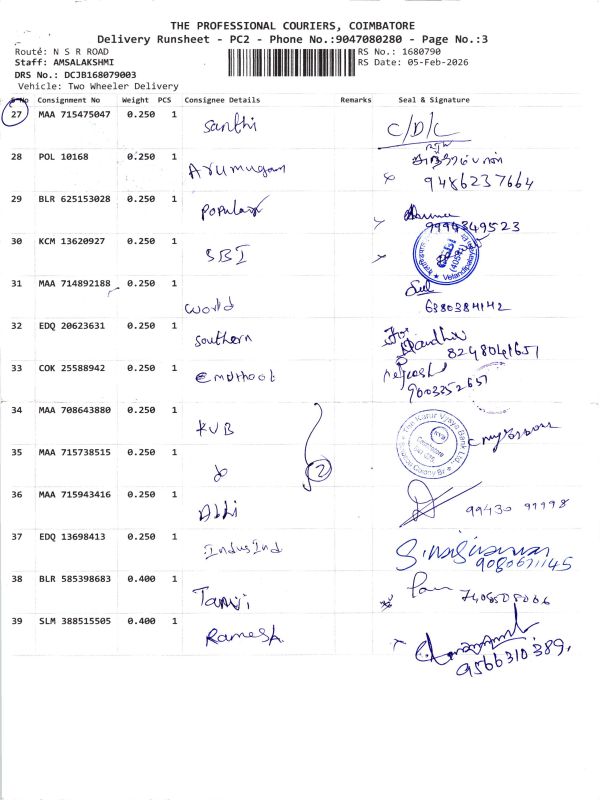 THE PROFESSIONAL COURIERS, COIMBATORE
Delivery Runsheet - PC2 - Phone No.:9047080280 - Page No.:3
Route: N S R ROAD
RS No.: 1680790
Staff: AMSALAKSHMI
RS Date: 05-Feb-2026
DRS No.: DCJB168079003
Vehicle: Two Wheeler Delivery
S No Consignment No Weight PCS Consignee Details Remarks Seal & Signature
27 MAA 715475047 0.250 1 Santhi C/D/C
28 POL 10168 0.250 1 Arumugam
9486237664
29 BLR 625153028 0.250 1 Popular
9994349523
30 KCM 13620927 0.250 1 SBI
31 MAA 714892188 0.250 1 World
6380384142
32 EDQ 20623631 0.250 1 Southern For
8248041651
33 COK 25588942 0.250 1
9003352657
34 MAA 708643880 0.250 1 KVB
The Karur Vysya Bank Ltd.,
35 MAA 715738515 0.250 1 do 2
36 MAA 715943416 0.250 1
99430 99998
37 EDQ 13698413 0.250 1 IndusInd
9080671145
38 BLR 585398683 0.400 1
39 SLM 388515505 0.400 1 Ramesh
9566310389